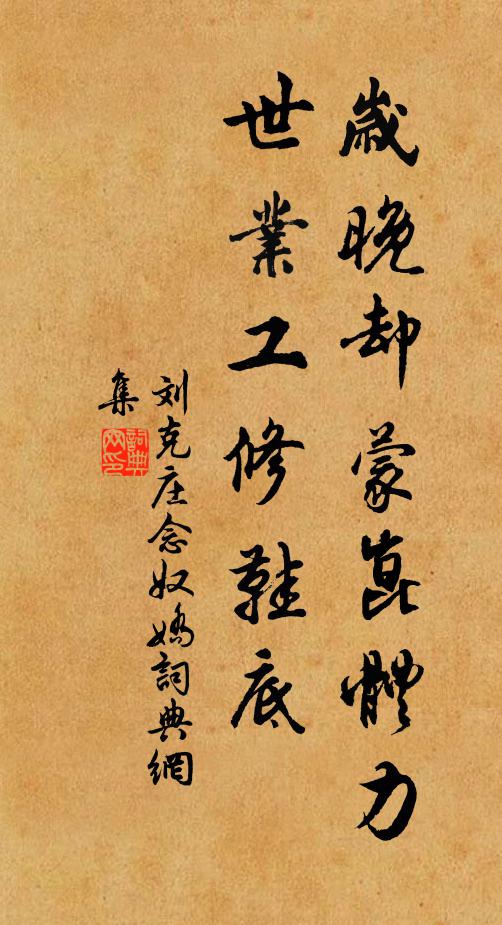 歲晚却蒙崑體力
世業工修鞋底
刘克庄念奴嬌詞典網
集
詞典
网印